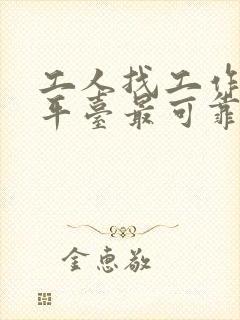 工人找工作
平臺最可靠
金惠敬